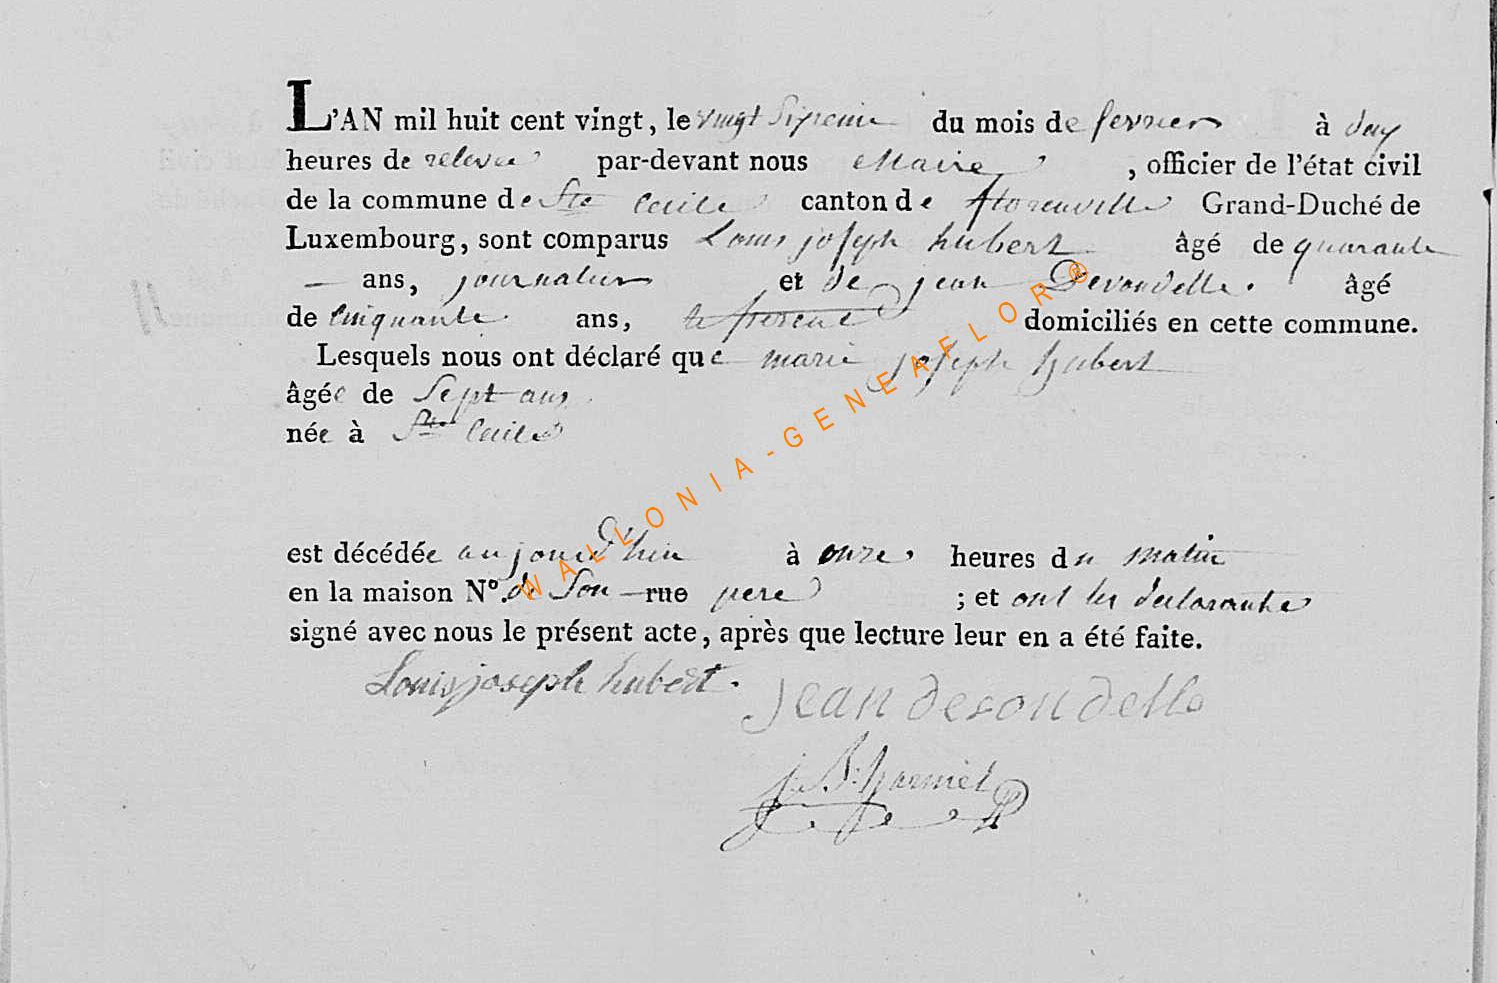 L'AN mil huit cent vingt, le vingt Sixieme du mois de fevrier à deux
heures de relevee par-devant nous Maire, officier de l'état civil
de la commune de Ste Cecile canton de florenville Grand-Duché de
Luxembourg, sont comparus Louis joseph hubert âgé de quarante
— ans, journalier et de jean Devondelle. âgé
de cinquante ans, domiciliés en cette commune.
Lesquels nous ont déclaré que marie joseph hubert
âgée de Sept ans
née à Ste Cecile
est décédée aujourd'hui à onze heures du matin
en la maison N°. de Son rue pere ; et ont les declarants
signé avec nous le présent acte, après que lecture leur en a été faite.
Louis joseph hubert.
jean desondelle
11
WALLONIA-GENEAFLOR®